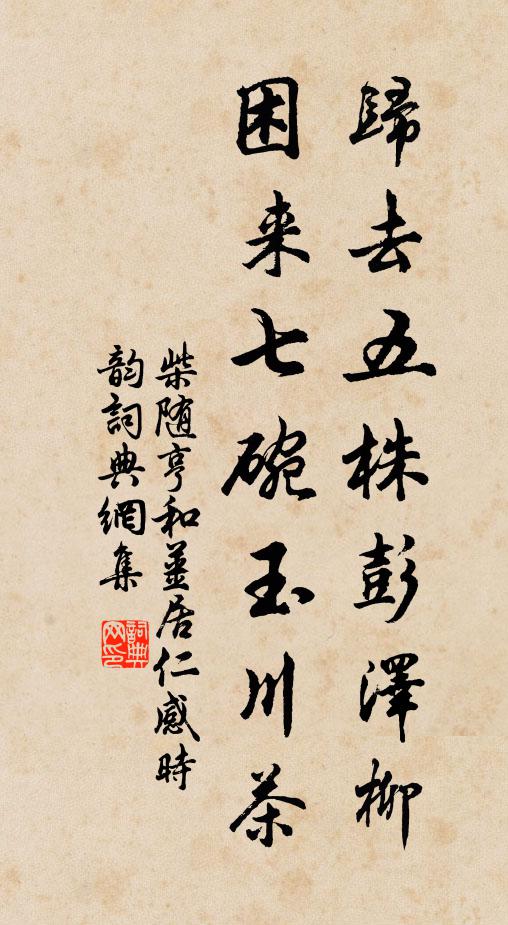 歸去五株彭澤柳
困来七碗玉川茶
柴随亨和薑居仁感時
韵詞典網集
詞典网印